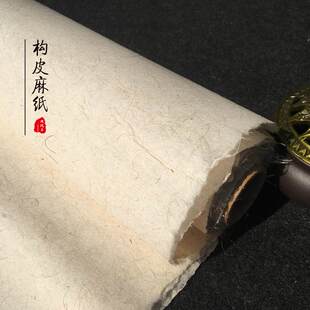 构皮麻纸